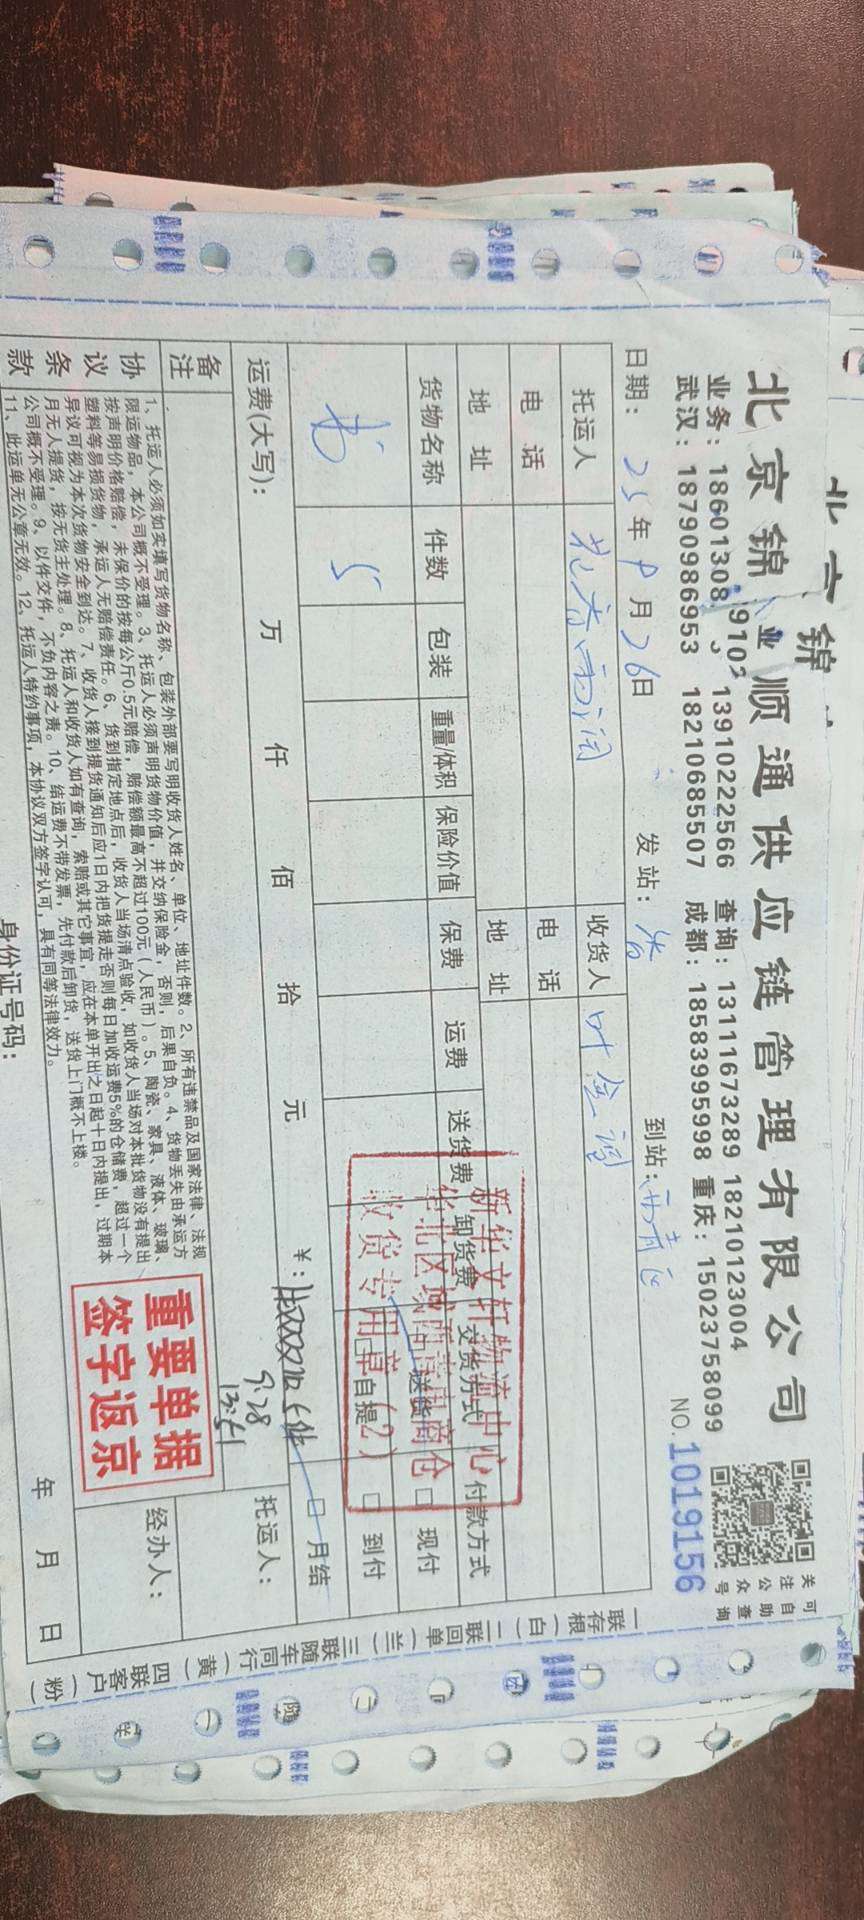 北京锦
北京锦业顺通供应链管理有限公司
业务：18601308 9102 13910222566 查询：13111673289 18210123004
武汉：18790986953 18210685507 成都：18583995998 重庆：15023758099
关注公众号
可自助查询
日期：25年9月26日 发站： 到站：西青区 NO.1019156
托运人 收货人 叶金
电话 电话
地址 地址
货物名称 件数 包装 重量/体积 保险价值 保费 运费 送货费 卸货费 交货方式 付款方式
书 5 送货 □现付
□自提 □到付
□月结
新华文轩物流中心
华北区域 电商仓
收货专用章（2）
运费(大写)： 万 仟 佰 拾 元 ¥：
5件
9.28
13:51
托运人：
备注
重要单据
签字返京
经办人：
年 月 日
协议条款
1、托运人必须如实填写货物名称、包装外部要写明收货人姓名、单位、地址件数。2、所有违禁品及国家法律、法规
限运物品，本公司概不受理。3、托运人必须声明货物价值，并交纳保险金，否则，后果自负。4、货物丢失由承运方
按声明价格赔偿，未保价的按每公斤0.5元赔偿，赔偿额最高不超过100元（人民币）。5、陶瓷、家具、液体、玻璃、
塑料等易损货物，承运人无赔偿责任。6、货到指定地点后，收货人当场清点验收，如收货人当场对本批货物没有提出
异议可视为本次货物安全到达。7、收货人接到提货通知后应1日内把货提走否则每日加收运费5%的仓储费，超过一个
月无人提货，按无货主处理。8、托运人和收货人如有查询，索赔或其它事宜，应在本单开出之日起十日内提出，过期本
公司概不受理。9、以件交件，不负内容之责。10、结运费不带发票，先付款后卸货，送货上门概不上楼。
11、此运单无公章无效。12、托运人特约事项，本协议双方签字认可，具有同等法律效力。
身份证号码：
一联存根（白） 二联回单（兰） 三联随车同行（黄） 四联客户（粉）